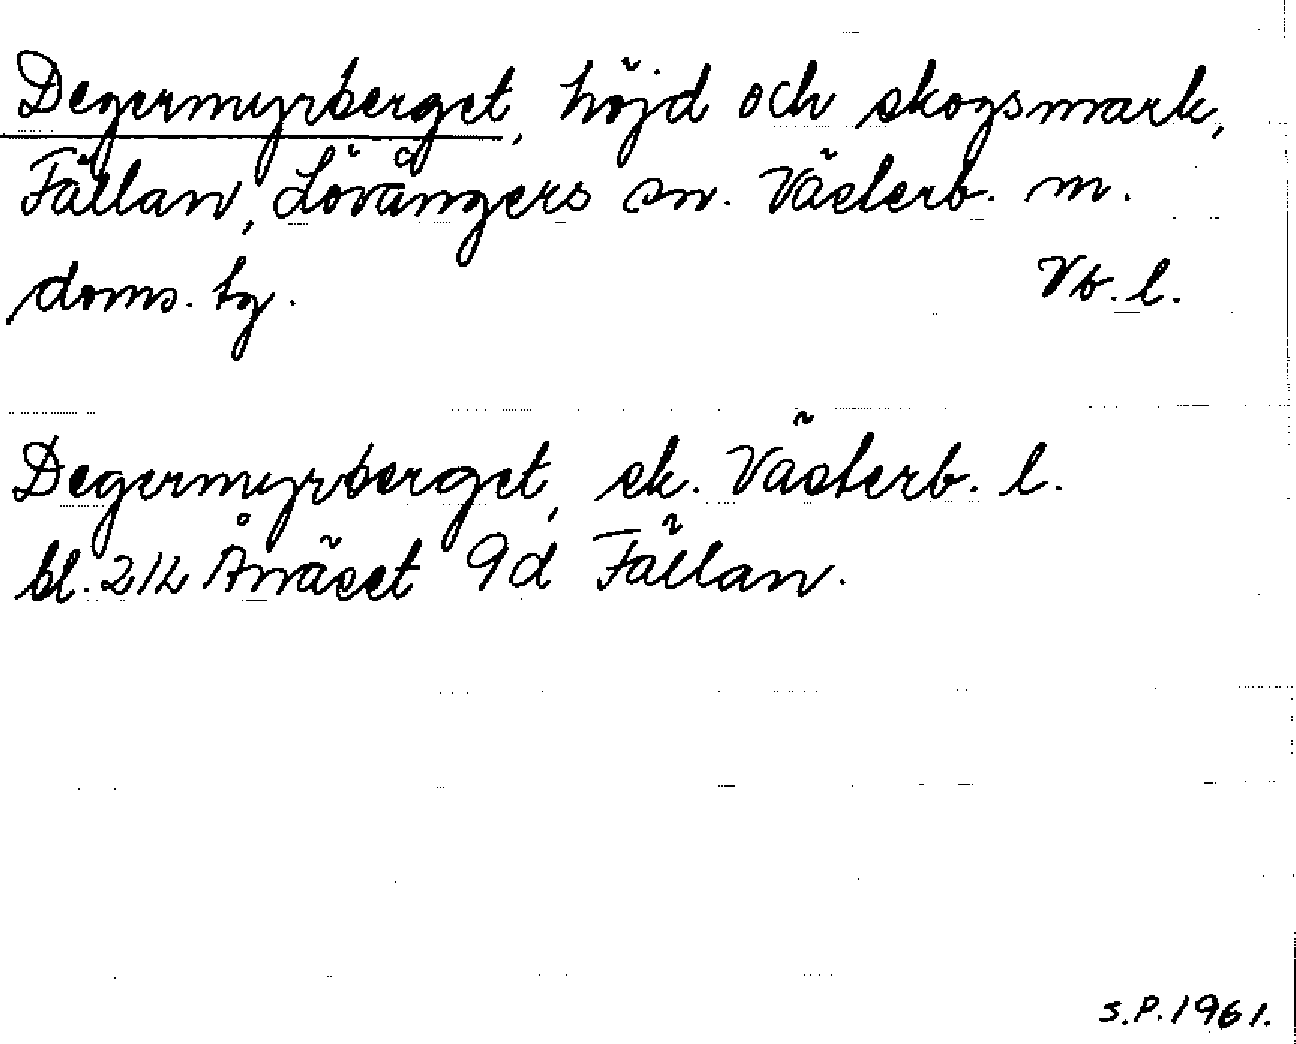 Degermyrberget, höjd och skogsmark,
Fällan, Lövångers sn. Västerb. m.
doms. tg. Vb. l.
Degermyrberget, ek. Västerb. l.
bl. 212 Ånäset 9d Fällan.
S.P. 1961.